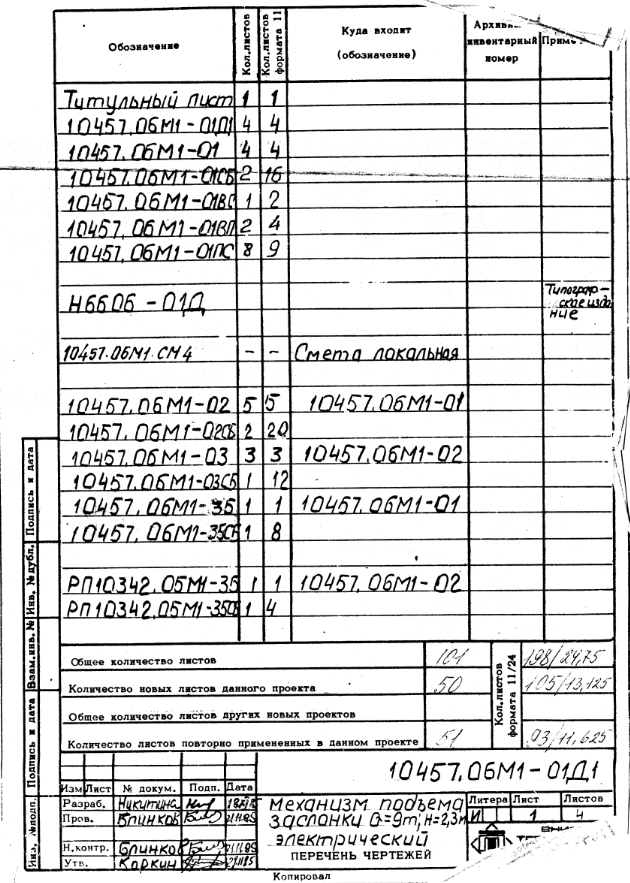 Обозначение Кол.листов Кол.листов формата 11 Куда входит (обозначение) инвентарный номер
Титульный лист 1 1
10457.06М1-01Д1 4 4
10457.06М1-01 4 4
10457.06М1-01СБ 2 16
10457.06М1-01ВС 1 2
10457.06М1-01ВП 2 4
10457.06М1-01ПС 8 9
Н6606-01Д Типограф-
ское изда
ние
10457.06М1.СМ4 - - Смета локальная
10457.06М1-02 5 5 10457.06М1-01
10457.06М1-02СБ 2 20
10457.06М1-03 3 3 10457.06М1-02
10457.06М1-03СБ 1 12
10457.06М1-35 1 1 10457.06М1-01
10457.06М1-35СБ 1 8
РП10342.05М1-35 1 1 10457.06М1-02
РП10342.05М1-35СБ 1 4
Общее количество листов 101 Кол.листов формата 11/24 198/24,75
Количество новых листов данного проекта 50 105/13,125
Общее количество листов других новых проектов
Количество листов повторно примененных в данном проекте 51 93/11,625
10457.06М1-01Д1
Изм Лист № докум. Подп. Дата
Разраб. Никитина
Пров. Блинков
Н.контр. Блинков
Утв. Коркин
Механизм подъема
заслонки G=9т; Н=2,3м
электрический
ПЕРЕЧЕНЬ ЧЕРТЕЖЕЙ
Литера Лист Листов
И 1 4
Подпись и дата
Инв. № дубл.
Взам.инв. №
Подпись и дата
Инв. № подл.
Копировал